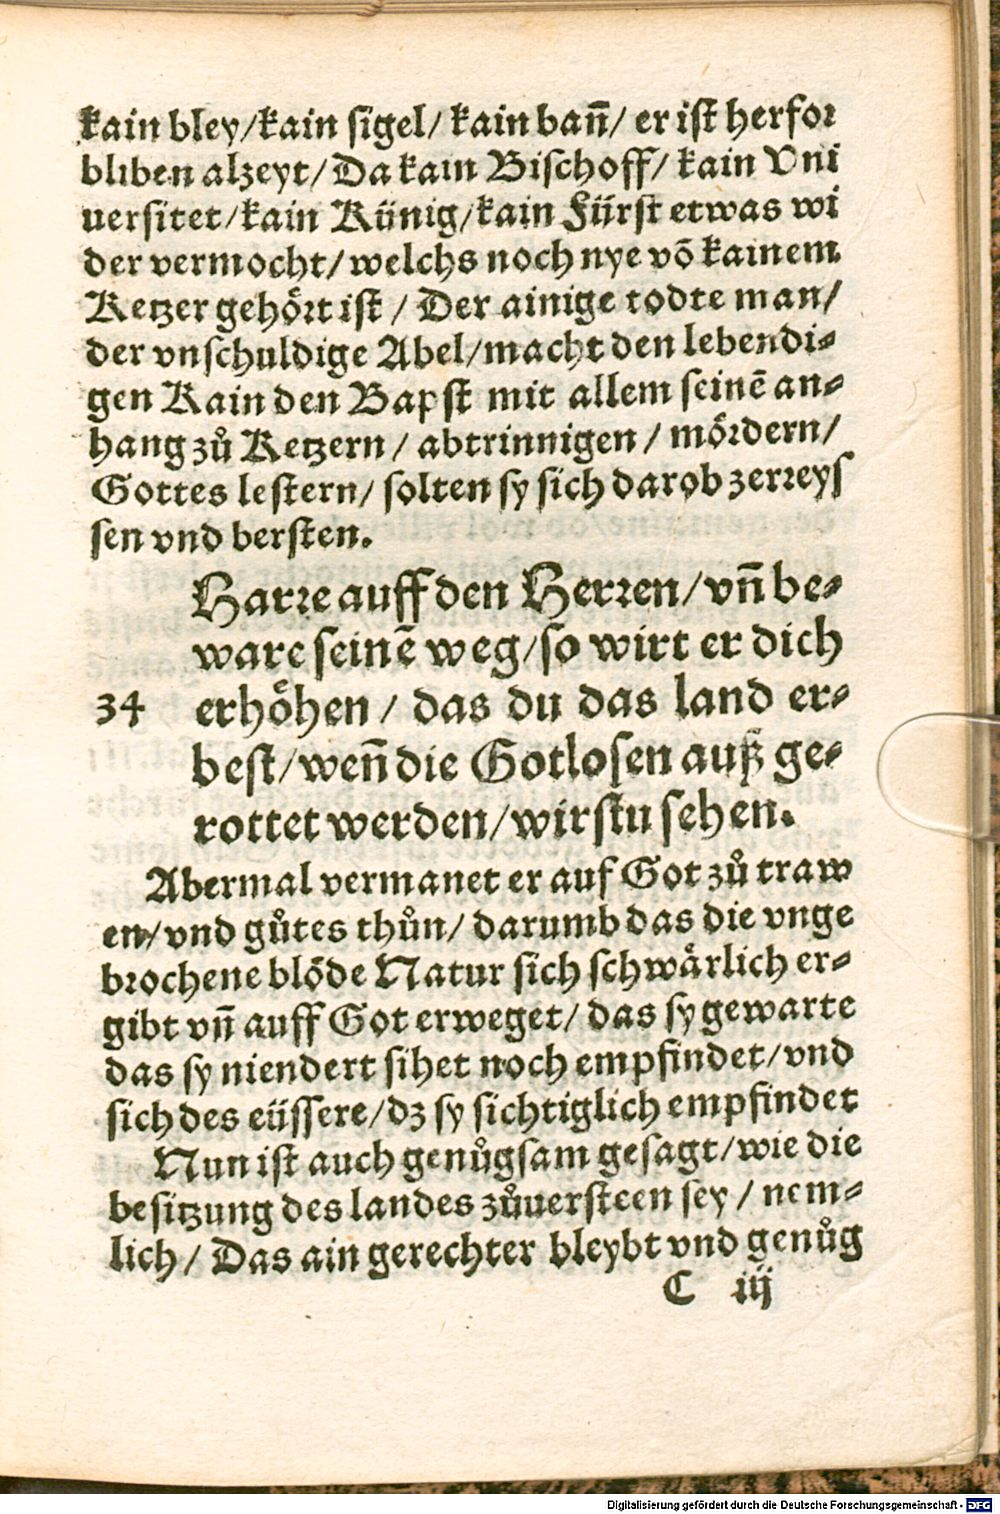 kain bley/kain sigel/ kain bañ/ er ist herfor
bliben alzeyt/ Da kain Bischoff/ kain Vni
uersitet/kain Künig/kain Fürst etwas wi
der vermocht/ welchs noch nye võ kainem
Ketzer gehört ist / Der ainige todte man/
der vnschuldige Abel/macht den lebendi-
gen Kain den Bapst mit allem seinē an-
hang zů Ketzern / abtrinnigen / mördern/
Gottes lestern/ solten sy sich darob zerreys
sen vnd bersten.
Harre auff den Herren/ vñ be-
ware seinē weg/so wirt er dich
34 erhöhen / das du das land er-
best/weñ die Gotlosen auß ge-
rottet werden/wirstu sehen.
Abermal vermanet er auf Got zů traw
en/vnd gůtes thůn/ darumb das die vnge
brochene blöde Natur sich schwärlich er-
gibt vñ auff Got erweget/ das sy gewarte
das sy niendert sihet noch empfindet/vnd
sich des eüssere/dz sy sichtiglich empfindet
Nun ist auch genůgsam gesagt/wie die
besitzung des landes zůuersteen sey / nem-
lich/ Das ain gerechter bleybt vnd genůg
C iij
Digitalisierung gefördert durch die Deutsche Forschungsgemeinschaft - DFG